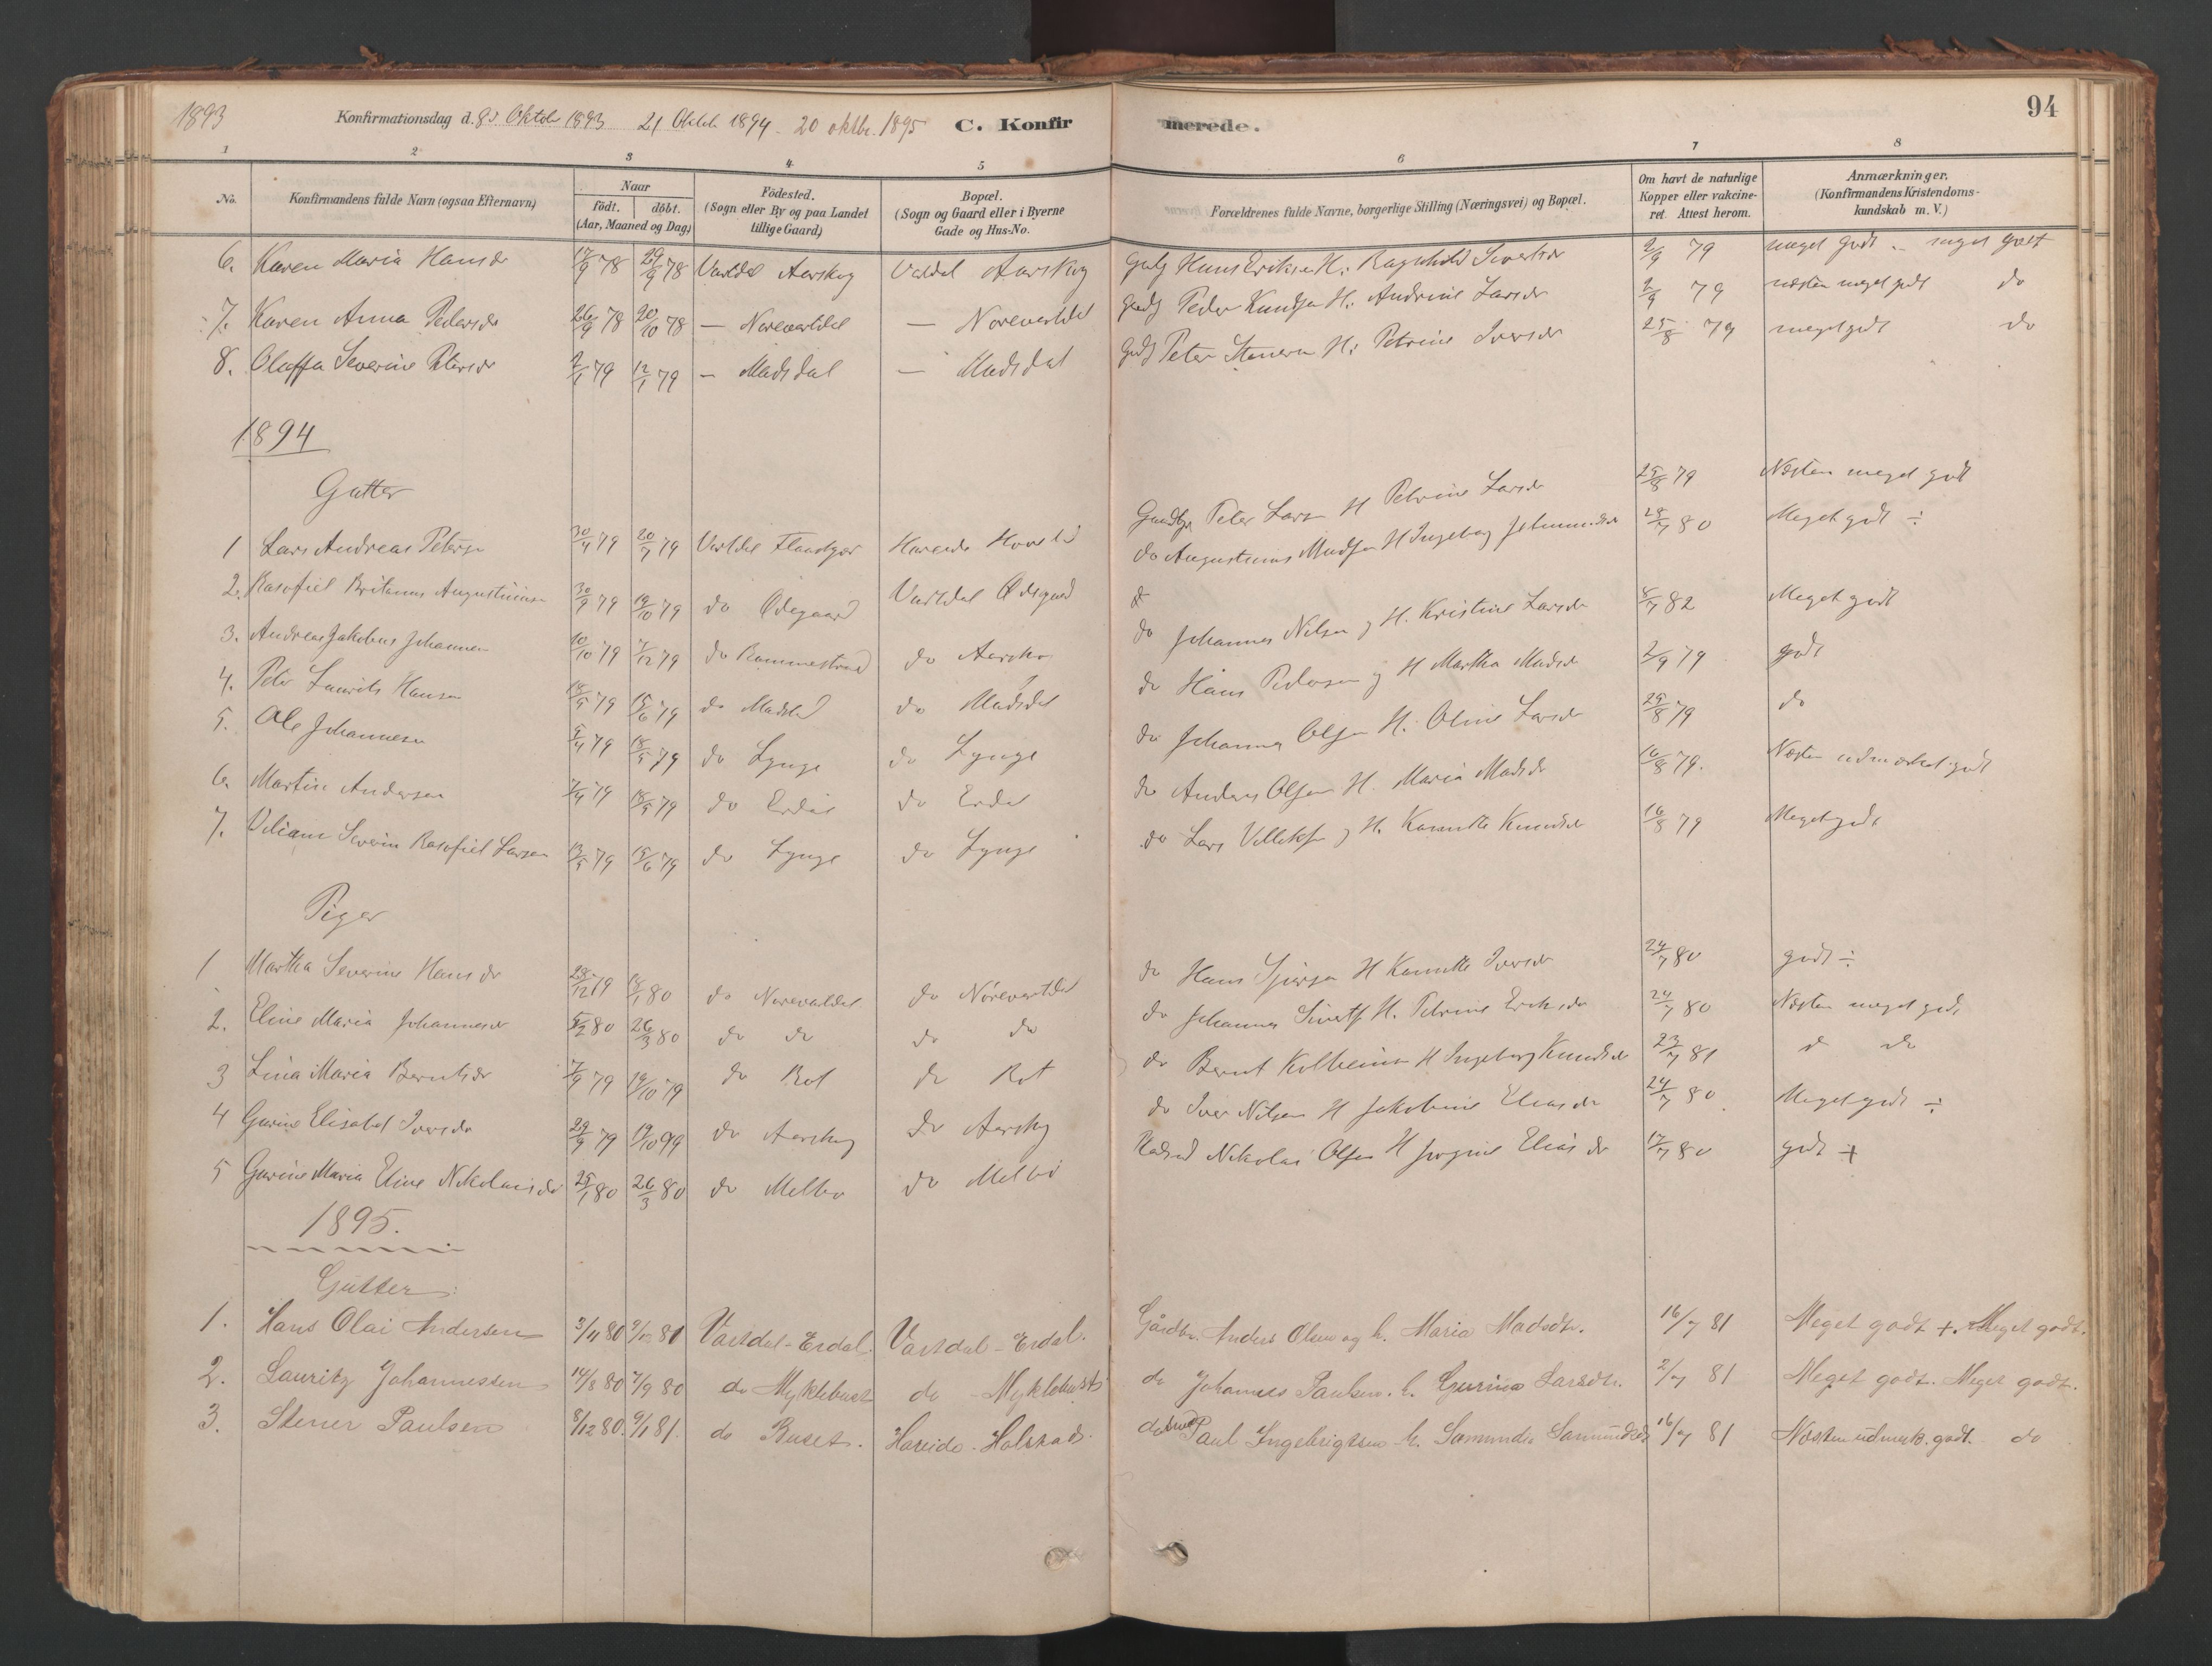 1893 Konfirmationsdag d. 8de Oktob 1893 21 Oktob 1894. 20 oktbr. 1895 C. Konfirmerede. 94
1 2 3 4 5 6 7 8
No. Konfirmandens fulde Navn (ogsaa Efternavn) Naar født. døbt. (Aar, Maaned og Dag) Födested. (Sogn eller By og paa Landet tillige Gaard) Bopæl. (Sogn og Gaard eller i Byerne Gade og Hus-No. Forældrenes fulde Navne, borgerlige Stilling (Næringsvei) og Bopæl. Om havt de naturlige Kopper eller vakcineret. Attest herom. Anmærkninger. (Konfirmandens Kristendomskundskab m. V.)
6. Karen Maria Hansdr 17/9 78 29/9 78 Vartdal Aarskog Vartdal Aarskog Gbr Hans Eriksen H: Ragnhild Sivertsdr 2/9 79 meget godt - meget godt
7. Karen Anna Pedersdr 26/9 78 20/10 78 — Norevartdal — Norevartdal Gbr Peder Knudsen H: Andrine Larsdr 2/9 79 næsten meget godt do
8. Oluffa Severine Petersdr 2/1 79 12/1 79 — Madsdal — Madsdal Gbr Peter H: Petrine Iversdr 25/8 79 meget godt do
1894
Gutter
1 Lars Andreas Petersen 30/4 79 20/7 79 Vartdal Hareide Gaardbr Peter Larsen H Petrine Larsdr 25/8 79 Næsten meget godt
2. Rasofiel Britanus Augustinusen 30/9 79 19/10 79 do Ødegaard Vartdal Ødegaard do Augustinus Madsen H Ingeborg Johannesdr 28/7 80 Meget godt ÷
3. Andreas Jakobus Johannesen 10/10 79 7/12 79 do Rammestrand do Aarskog do Johannes Nilsen og H. Kristine Larsdr 8/7 82 Meget godt
4. Peter Laurits Hansen 18/5 79 15/6 79 do Madsdal do Madsdal do Hans Pedersen og H Martha Madsdr 2/9 79 godt
5. Ole Johannesen 5/4 79 18/5 79 do Lynge do Lynge do Johannes Olsen H: Oline Larsdr 29/8 79 do
6. Martin Andersen 7/4 79 18/5 79 do Erdal do Erdal do Anders Olsen H. Maria Madsdr 16/8 79. Næsten udmærket godt
7. Viliam Severin Rasofiel Larsen 13/5 79 15/6 79 do Lynge do Lynge do Lars og H. Karen Knudsdr 16/8 79 Meget godt
Piger
1 Martha Severine Hansdr 28/12 79 18/1 80 do Norevartdal do Nörevartdal do Hans H Iversdr 24/7 80 godt ÷
2. Eline Maria Johannesdr 5/2 80 26/3 80 do do do do do Johannes Sivertsen H. Petrine Eriksdr 24/7 80 Næsten meget godt
3 Lina Maria Berntsdr 7/9 79 19/10 79 do Rot do Rot do Bernt H Ingeborg Knudsdr 23/7 81 do do
4 Gurine Elisabet Iversdr 29/9 79 19/10 99 do Aarskog do Aarskog do Iver Nilsen H Jakobine Eliasdr 24/7 80 Meget godt ÷
5 Gurine Maria Eline Nikolaisdr 25/1 80 26/3 80 do Melbø do Melbö Nikolai Olsen H Jørgine Eliasdr 17/7 80 godt +
1895.
Gutter:
1. Hans Olai Andersen 3/11 80 2/10 81 Vartdal - Erdal. Vartdal - Erdal. Gårdbr. Anders Olsen og h. Maria Madsdtr. 16/7 81 Meget godt +. Meget godt.
2. Lauritz Johannessen 14/8 80 7/9 80 do Myklebust do - Myklebust do Johannes Paulsen. h. Gurine Larsdtr. 2/7 81 Meget godt. Meget godt.
3. Stener Paulsen 8/12 80. 9/1 81. do Buset. Hareide - Holstad. Paul Ingebrigtsen h. 16/7 81 Næsten udmærk. godt. do